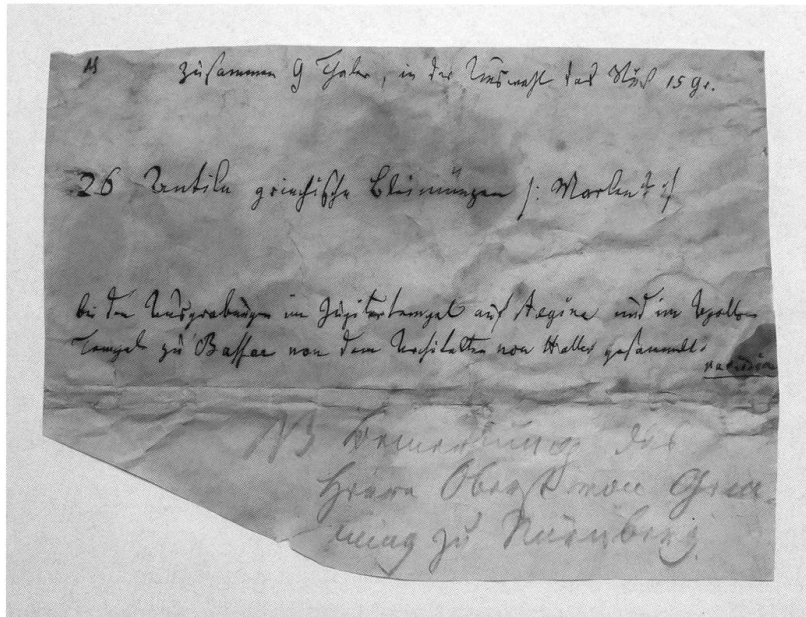 zusammen 9 Thaler, in der Auswahl das Stück 15 gr.
26 Antike griechische Bleimünzen /: Marken? :/
bei den Ausgrabungen im Jupitertempel auf Aegina und im Apollo-
Tempel zu Bassae von dem Architekten von Haller gesammelt.
NB Bemerkung des
Herrn Oberst von Gem-
ming zu Nürnberg.